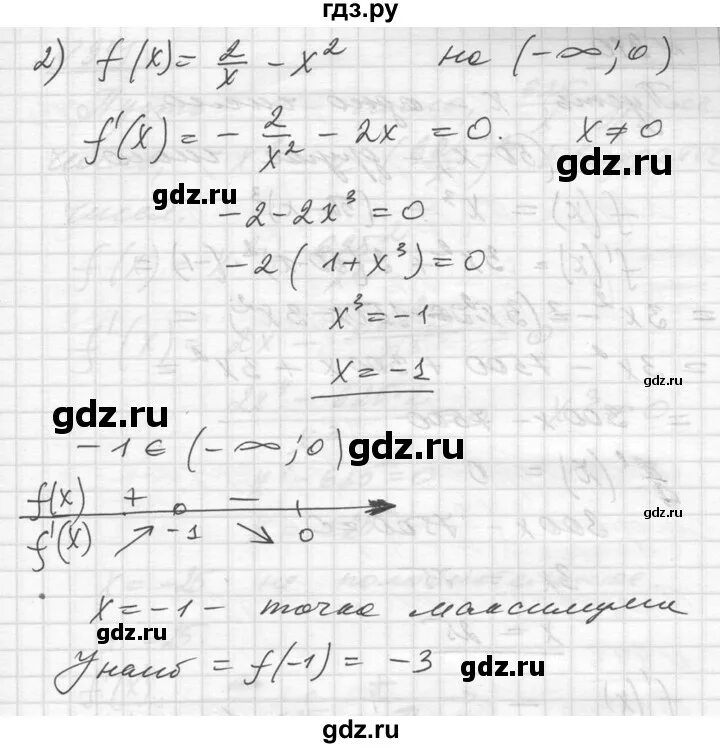 гдз.ру
2) f(x) = 2/x - x² на (-∞; 0)
f'(x) = - 2/x² - 2x = 0. x ≠ 0
gdz.ru gdz.ru
-2 - 2x³ = 0
-2(1 + x³) = 0
x³ = -1
x = -1
gdz.ru
gdz.ru
-1 ∈ (-∞; 0)
gdz.ru
f(x) + -
gdz.ru
f'(x) ↗ -1 ↘ 0
x = -1 - точка максимума
gdz.ru
Yнаиб = f(-1) = -3
gdz.ru
gdz.ru